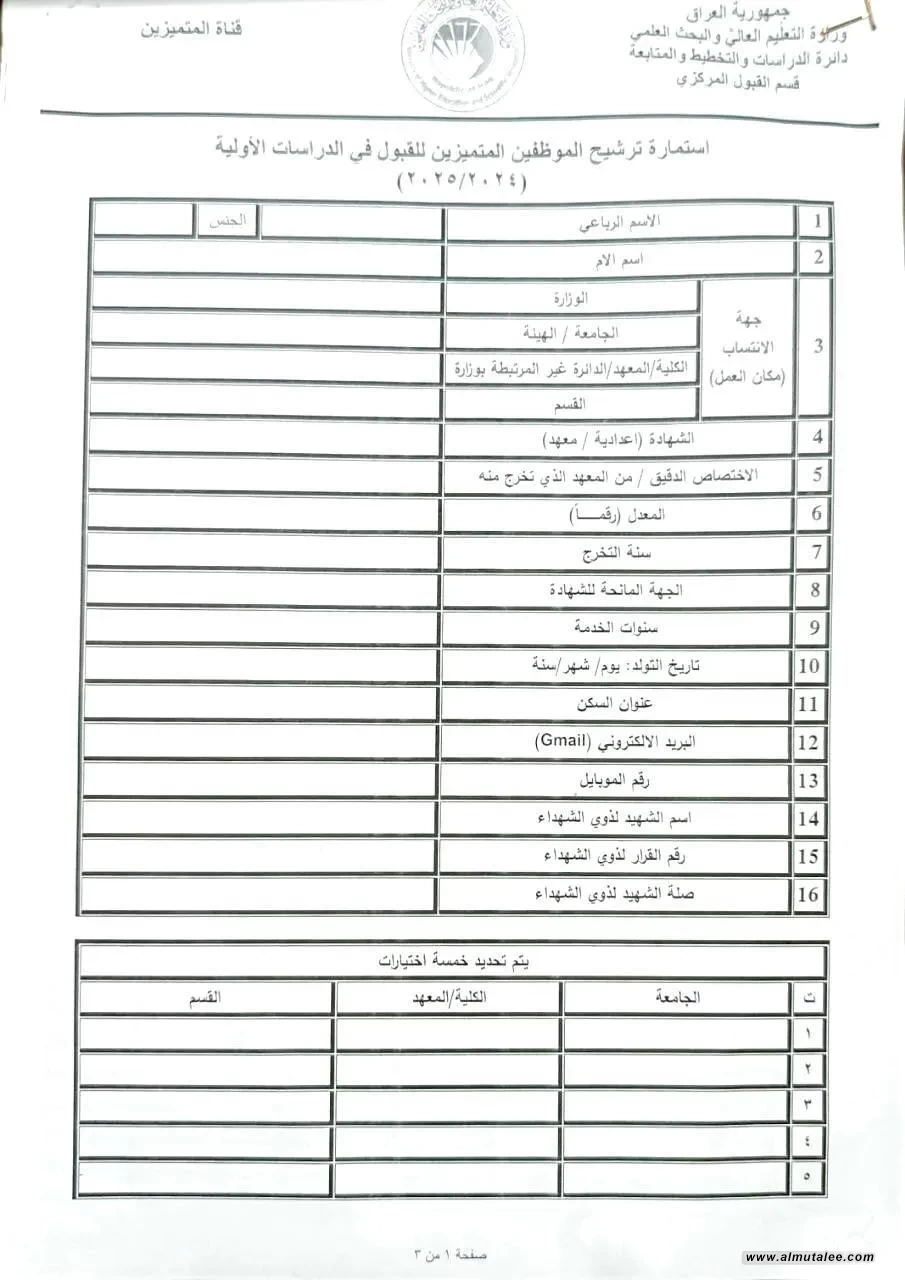 جمهورية العراق
وزارة التعليم العالي والبحث العلمي
دائرة الدراسات والتخطيط والمتابعة
قسم القبول المركزي
قناة المتميزين
استمارة ترشيح الموظفين المتميزين للقبول في الدراسات الأولية
(٢٠٢٥/٢٠٢٤)
1 الاسم الرباعي الجنس
2 اسم الام
3 جهة الانتساب (مكان العمل)
الوزارة
الجامعة / الهيئة
الكلية/المعهد/الدائرة غير المرتبطة بوزارة
القسم
4 الشهادة (اعدادية / معهد)
5 الاختصاص الدقيق / من المعهد الذي تخرج منه
6 المعدل (رقمـــاً)
7 سنة التخرج
8 الجهة المانحة للشهادة
9 سنوات الخدمة
10 تاريخ التولد: يوم/ شهر/سنة
11 عنوان السكن
12 البريد الالكتروني (Gmail)
13 رقم الموبايل
14 اسم الشهيد لذوي الشهداء
15 رقم القرار لذوي الشهداء
16 صلة الشهيد لذوي الشهداء
يتم تحديد خمسة اختيارات
ت الجامعة الكلية/المعهد القسم
١
٢
٣
٤
٥
صفحة ١ من ٣
www.almutalee.com